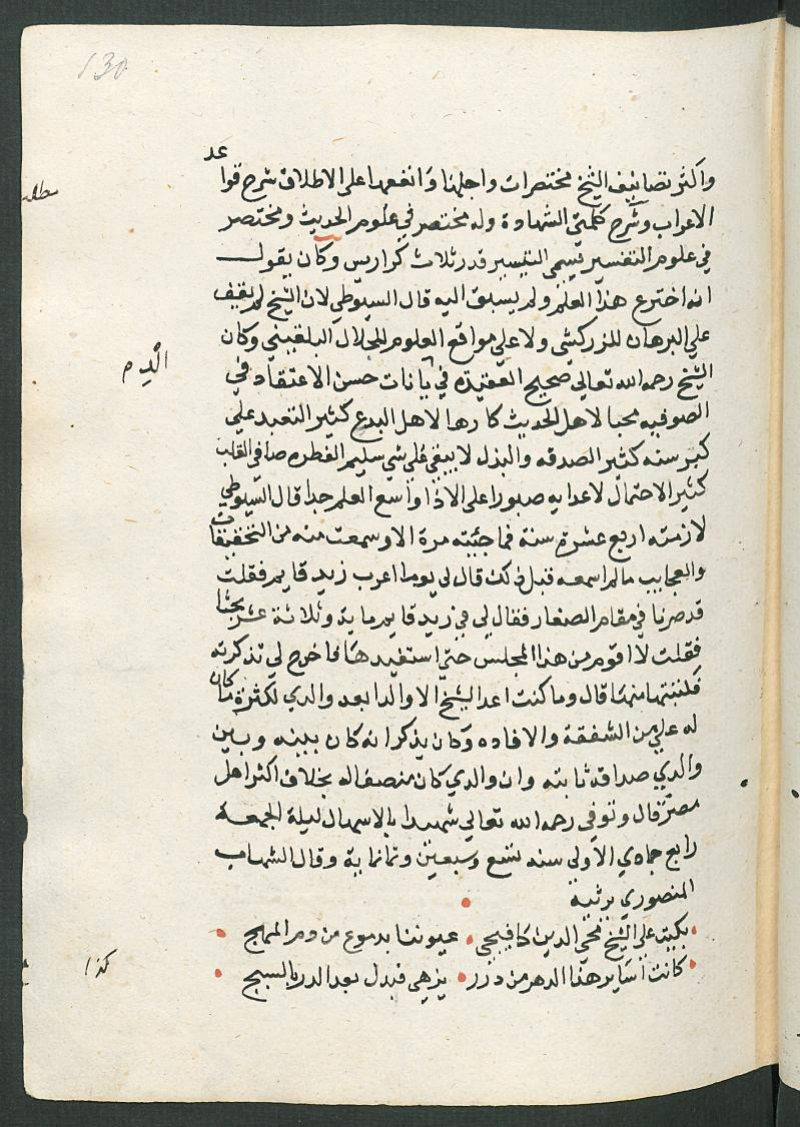 130
واكثر تصانيف الشيخ مختصرات واجلها وانفعها على الاطلاق شرح قواعد
الاعراب وشرح كلمتي الشهادة وله مختصر في علوم الحديث ومختصر
في علوم التفسير يسمى التيسير قدر ثلاث كراريس وكان يقول
انه اخترع هذا العلم ولم يسبق اليه قال السيوطي لان الشيخ لم يقف
علي البرهان للزركشى ولا على مواقع العلوم للجلال البلقيني وكان
الشيخ رحمه الله تعالى صحيح العقيدة في الديانات حسن الاعتقاد في
الصوفيه محبا لاهل الحديث كارها لاهل البدع كثير التعبد على
كبر سنه كثير الصدقه والبذل لا يبقي على شي سليم الفطره صافي القلب
كثير الاحتمال لاعدايه صبورا على الاذا واسع العلم جدا قال السيوطي
لازمته اربع عشرة سنة فما جئته مرة الا وسمعت منه من التحقيقات
والعجايب مالم اسمعه قبل ذلك قال لي يوما اعرب زيد قايم فقلت
قد صرنا في مقام الصغار فقال لي في زيد قايم ماية وثلاثة عشر بحثا
فقلت لا اقوم من هذا المجلس حتى استفيدها فاخرج لي تذكرته
فكتبتها منها قال وما كنت اعد الشيخ الا والدا بعد والدي لكثرة ما كان
له علي من الشفقة والافاده وكان يذكر انه كان بينه وبين
والدي صداقة ثابته وان والدي كان منصفا له بخلاف اكثر اهل
مصر قال وتوفي رحمه الله تعالي شهيدا بالاسهال ليلة الجمعة
رابع جمادي الاولى سنه تسع وسبعين وثمانماية وقال الشهاب
المنصوري يرثيه
بكيت على الشيخ محي الدين كافيجي عيوننا بدموع من دم المهج
كانت اسارير هذا الدهر من درر يزهي فبدل بعد الدر بالسبج
كذا